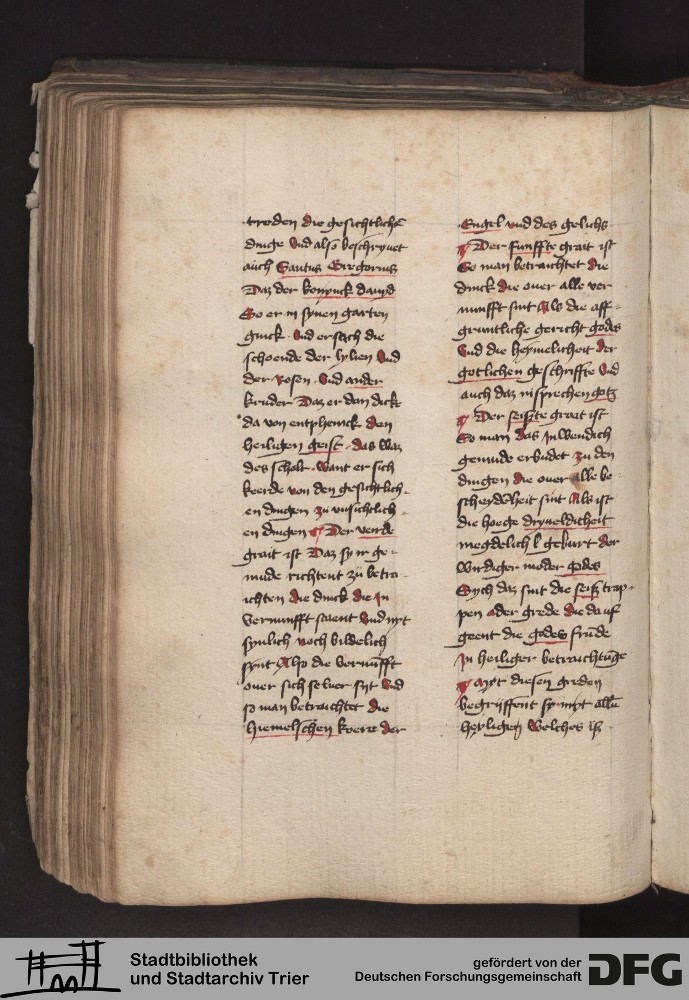 treden die gesichtliche
dinge Vnd also beschryuet
auch Santus Gregorius
Daz der konynck dauid
So er in synen garten
ginck · Vnd er sach die
schoende der lylien Vnd
der rosen · Vnd ander
kruder Daz er dan dick
da von entphenck den
heiligen geist · das waz
des scholt · want er sich
keerde von den gesichtlich
en dingen zu vnsichtlich
en dingen Der veirde
grait ist Daz sy ir ge
mude richtent zů betra
ichten die dinck die in
Vernunfft staent Vnd nyt
synlich noch bildelich
synt Also die vernunfft
ouer sich seluer syt Vnd
so man betraichtet die
hiemelschen koere der
Engel vnd des gelichs
Der funffte grait ist
So man betraichtet die
dinck die ouer alle ver
nunfft sint Als die aff
gruntliche gericht godes
Vnd die heymelicheit der
gotlichen geschriffte Vnd
auch daz insprechen gotz
Der seiszte grait ist
So man das Inwendich
gemude erbudet zu den
dingen die ouer alle be
scheydēheit sint Als ist
die hoege dryueldicheit
megdelich geburt der
wirdiger moder godes
Sych daz sint die seisz trap
pen ader grede die da uf
geent die godes frūde
In heiliger betraichtūge
Myt diesen greden
begryffent sy myt allē
heyligen Welches is
Stadtbibliothek
und Stadtarchiv Trier
gefördert von der
Deutschen Forschungsgemeinschaft
DFG